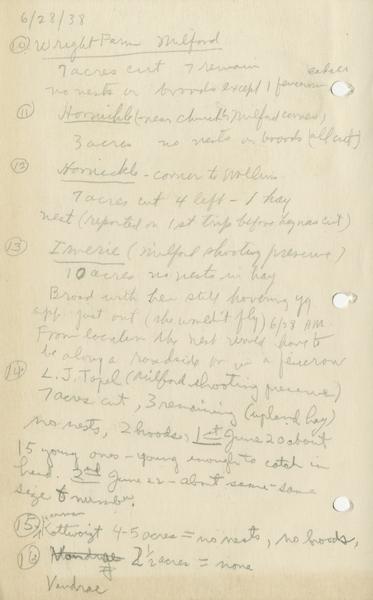 6/28/38
(10) Wright Farm Milford
7 acres cut 7 remain
no nests or broods except 1 fencerow
(11) Hornickle (-near church & Milford corners)
3 acres no nests or broods (all cut)
(12) Hornickle - corner to
7 acres cut 4 left - 1 hay
nest (reported on 1st trip before hay was cut)
(13) Imerie (Milford shooting preserve)
10 acres no nests in hay
Brood with hen still hovering yg
app. just out (she wouldn't fly) 6/28 AM
From location the nest would have to
be along a roadside or in a fencerow
(14) L.J. Topel (Milford shooting preserve)
7 acres cut, 3 remaining (upland hay)
no nests, 2 broods, 1st June 20 about
15 young ones - young enough to catch in
hand. 2nd June 22 - about same - same
size & number.
(15) Kottwoigt 4-5 acres = no nests, no broods,
(16) 2 1/2 acres = none
Vandrae